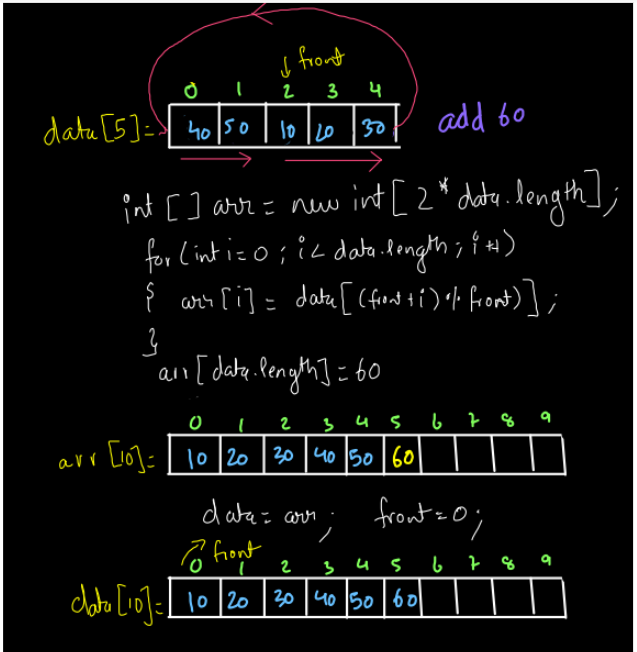 front
0 1 2 3 4
data[5]= 40 50 10 20 30 add 60
int [ ] arr = new int[2 * data.length];
for (int i=0 ; i< data.length ; i++)
{ arr[i] = data[(front+i) % front)] ;
}
arr[data.length]=60
0 1 2 3 4 5 6 7 8 9
arr [10]= 10 20 30 40 50 60
data= arr ; front=0 ;
front
0 1 2 3 4 5 6 7 8 9
data[10]= 10 20 30 40 50 60